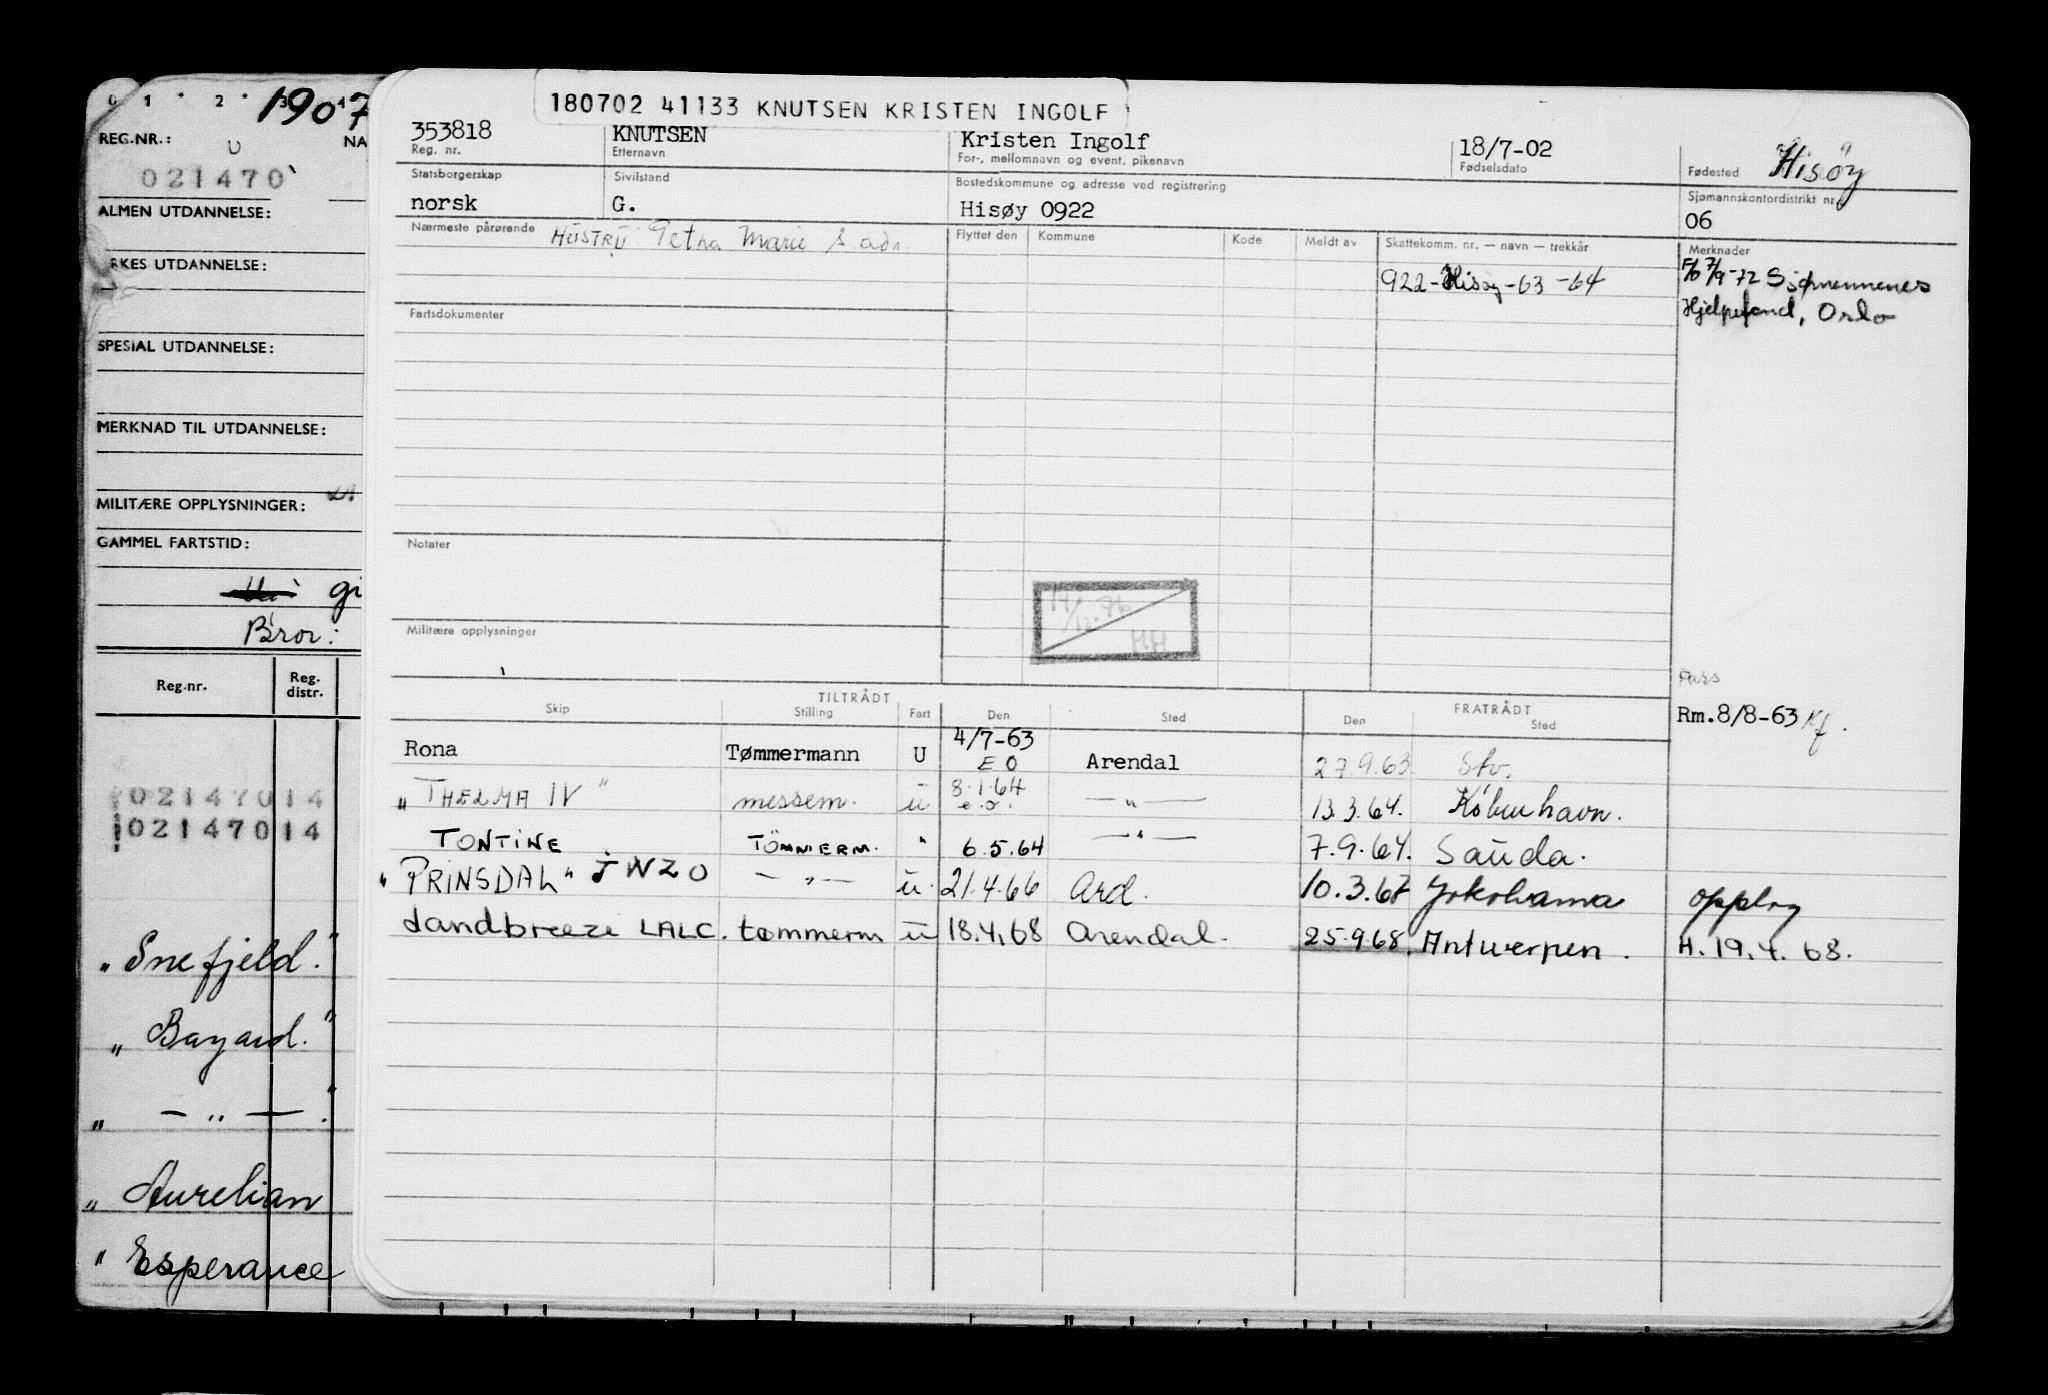 0 1 2 3 4
1907
REG.NR.: NA
U
021470
ALMEN UTDANNELSE:
RKES UTDANNELSE:
SPESIAL UTDANNELSE:
MERKNAD TIL UTDANNELSE:
MILITÆRE OPPLYSNINGER:
GAMMEL FARTSTID:
gi
Bror:
Reg.nr. Reg. distr.
02147014
02147014
"Snefjeld."
"Bayard."
" — " — "
"Aurelian
"Esperance
180702 41133 KNUTSEN KRISTEN INGOLF
353818 KNUTSEN Kristen Ingolf 18/7-02 Hisøy
Reg. nr. Etternavn For-, mellomnavn og event. pikenavn Fødselsdato Fødested
Statsborgerskap Sivilstand Bostedskommune og adresse ved registrering Sjømannskontordistrikt nr.
norsk G. Hisøy 0922 06
Nærmeste pårørende HUSTRU Petra Marie S. adr. Flyttet den Kommune Kode Meldt av Skattekomm. nr. — navn — trekkår Merknader
922-Hisøy-63-64 F/b 7/9-72 Sjømennenes
Hjelpefond, Oslo
Fartsdokumenter
Notater
Militære opplysninger
HH
Pass
TILTRÅDT FRATRÅDT
Skip Stilling Fart Den Sted Den Sted
Rm.8/8-63 Kf.
Rona Tømmermann U 4/7-63 EO Arendal 27.9.63 Stv.
"THELMA IV" messem. u 8.1.64 e.o. — " — 13.3.64. København.
TONTINE TÖMMERM. " 6.5.64 — " — 7.9.64. Sauda.
"PRINSDAL" JWZO — " — u. 21.4.66 Ard. 10.3.67 Yokohama opplag
Sandbreeze LALC. tømmerm u 18.4.68 Arendal. 25.9.68. Antwerpen. H. 19.4.68.